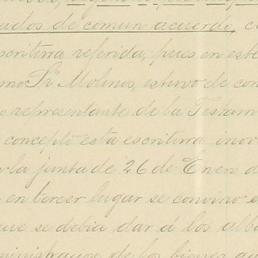 ados de comun acuerdo,
scritura referida, pues en este
mo Sr Molinos, estuvo de con
o representante de la Testam
concepto esta escritura inov
la junta de 26 de Enero d
en tercer lugar se convino e
ue se debia dar á los alba
ministradores de los bienes qu